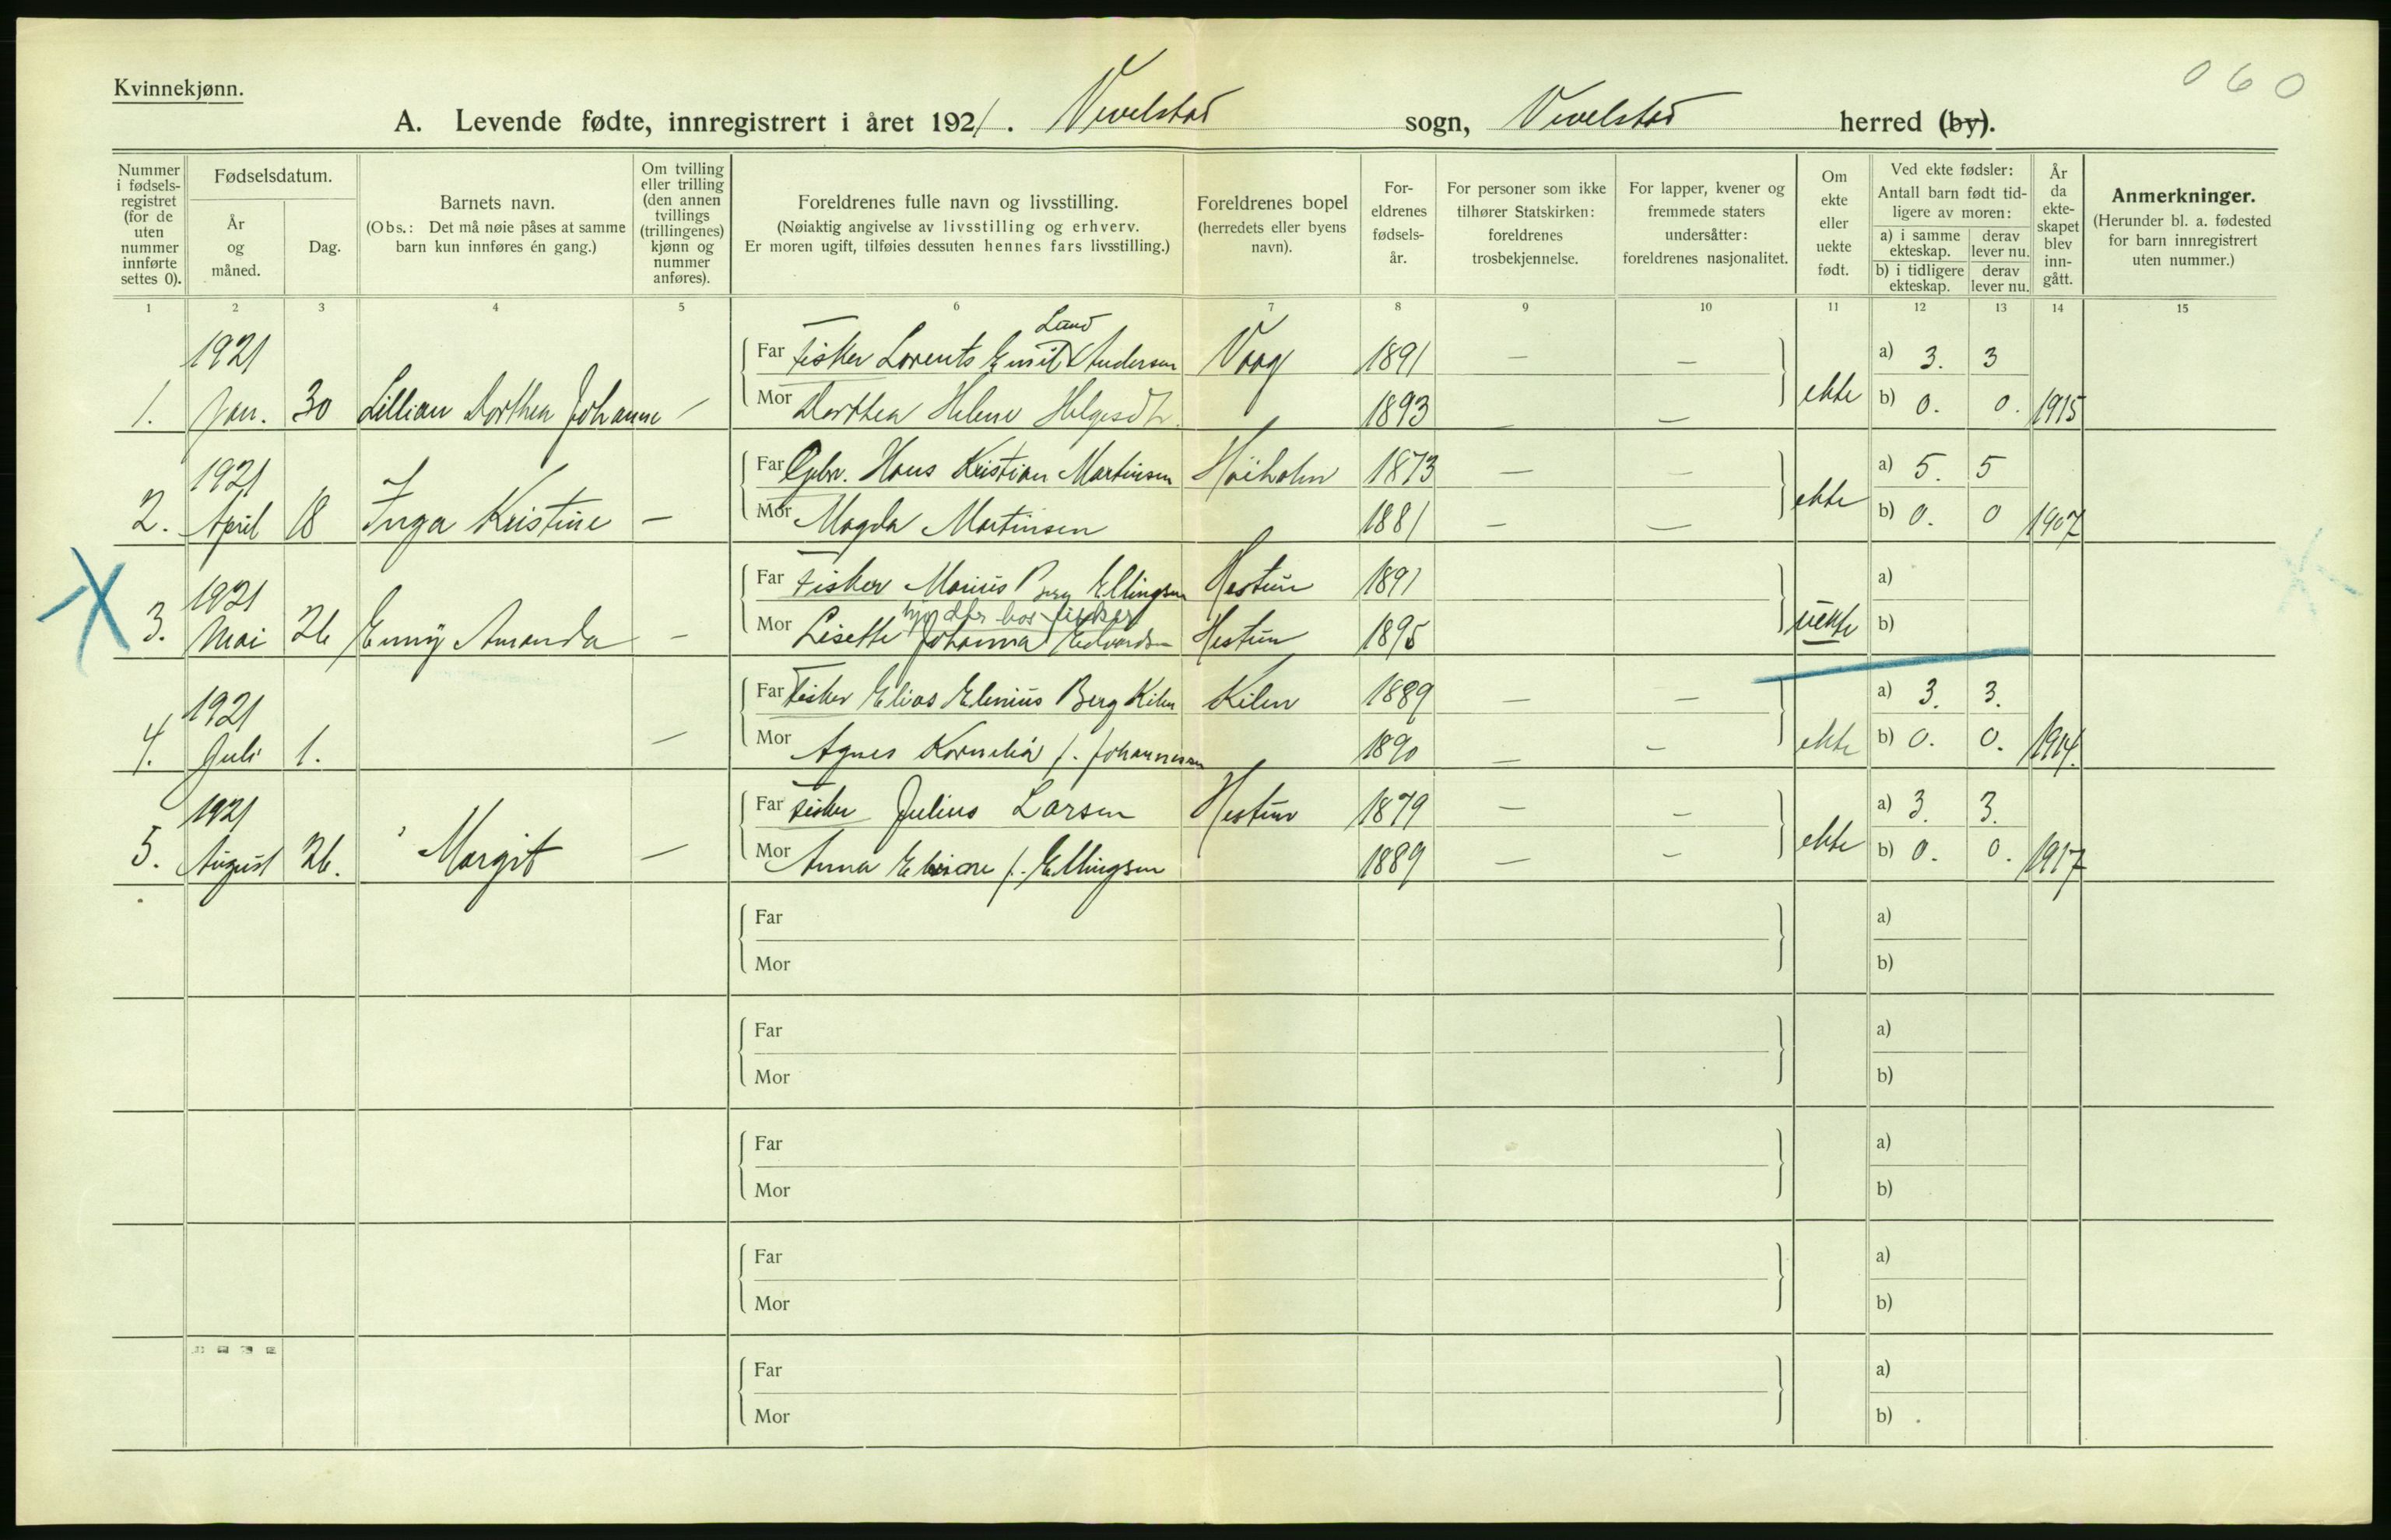 060
Kvinnekjønn.
A. Levende fødte, innregistrert i året 1921. Vevelstad sogn, Vevelstad herred (by).
Nummer i fødselsregistret (for de uten nummer innførte settes 0).
Fødselsdatum.
År og måned.
Dag.
Barnets navn.
(Obs.: Det må nøie påses at samme barn kun innføres én gang.)
Om tvilling eller trilling (den annen tvillings (trillingenes) kjønn og nummer anføres).
Foreldrenes fulle navn og livsstilling.
(Nøiaktig angivelse av livsstilling og erhverv. Er moren ugift, tilføies dessuten hennes fars livsstilling.)
Foreldrenes bopel (herredets eller byens navn).
Foreldrenes fødselsår.
For personer som ikke tilhører Statskirken: foreldrenes trosbekjennelse.
For lapper, kvener og fremmede staters undersåtter: foreldrenes nasjonalitet.
Om ekte eller uekte født.
Ved ekte fødsler: Antall barn født tidligere av moren:
a) i samme ekteskap. derav lever nu.
b) i tidligere ekteskap. derav lever nu.
År da ekteskapet blev inngått.
Anmerkninger.
(Herunder bl. a. fødested for barn innregistrert uten nummer.)
1 2 3 4 5 6 7 8 9 10 11 12 13 14 15
1. 1921 Jan. 30 Lillian Dorthea Johanne —
Land
Far Fisker Lorents Emil Andersen Vaag 1891 — — a) 3. 3
Mor Dorthea Helene Helgesdtr. 1893 — — ekte b) 0. 0. 1915
2. 1921 April 18 Inga Kristine —
Far Gbr. Hans Kristian Martinsen Høiholm 1873 — — a) 5. 5
Mor Magda Martinsen 1881 — — ekte b) 0. 0 1907
3. 1921 Mai 26 Enny Amanda —
Far Fisker Marius Berg Ellingsen Hestun 1891 a)
hos fisker
Mor Lisette Johanna Edvardsen Hestun 1895 uekte b)
4. 1921 Juli 1. —
Far Fisker Elias Elenius Berg Kilen Kilen 1889 — — a) 3. 3.
Mor Agnes Kornelia f. Johannesen 1890 — — ekte b) 0. 0. 1914.
5. 1921 August 26. Margit —
Far Fisker Julius Larsen Hestun 1879 — — a) 3. 3.
Mor Anna f. Ellingsen 1889 — — ekte b) 0. 0. 1917
Far a)
Mor b)
Far a)
Mor b)
Far a)
Mor b)
Far a)
Mor b)
Far a)
Mor b)